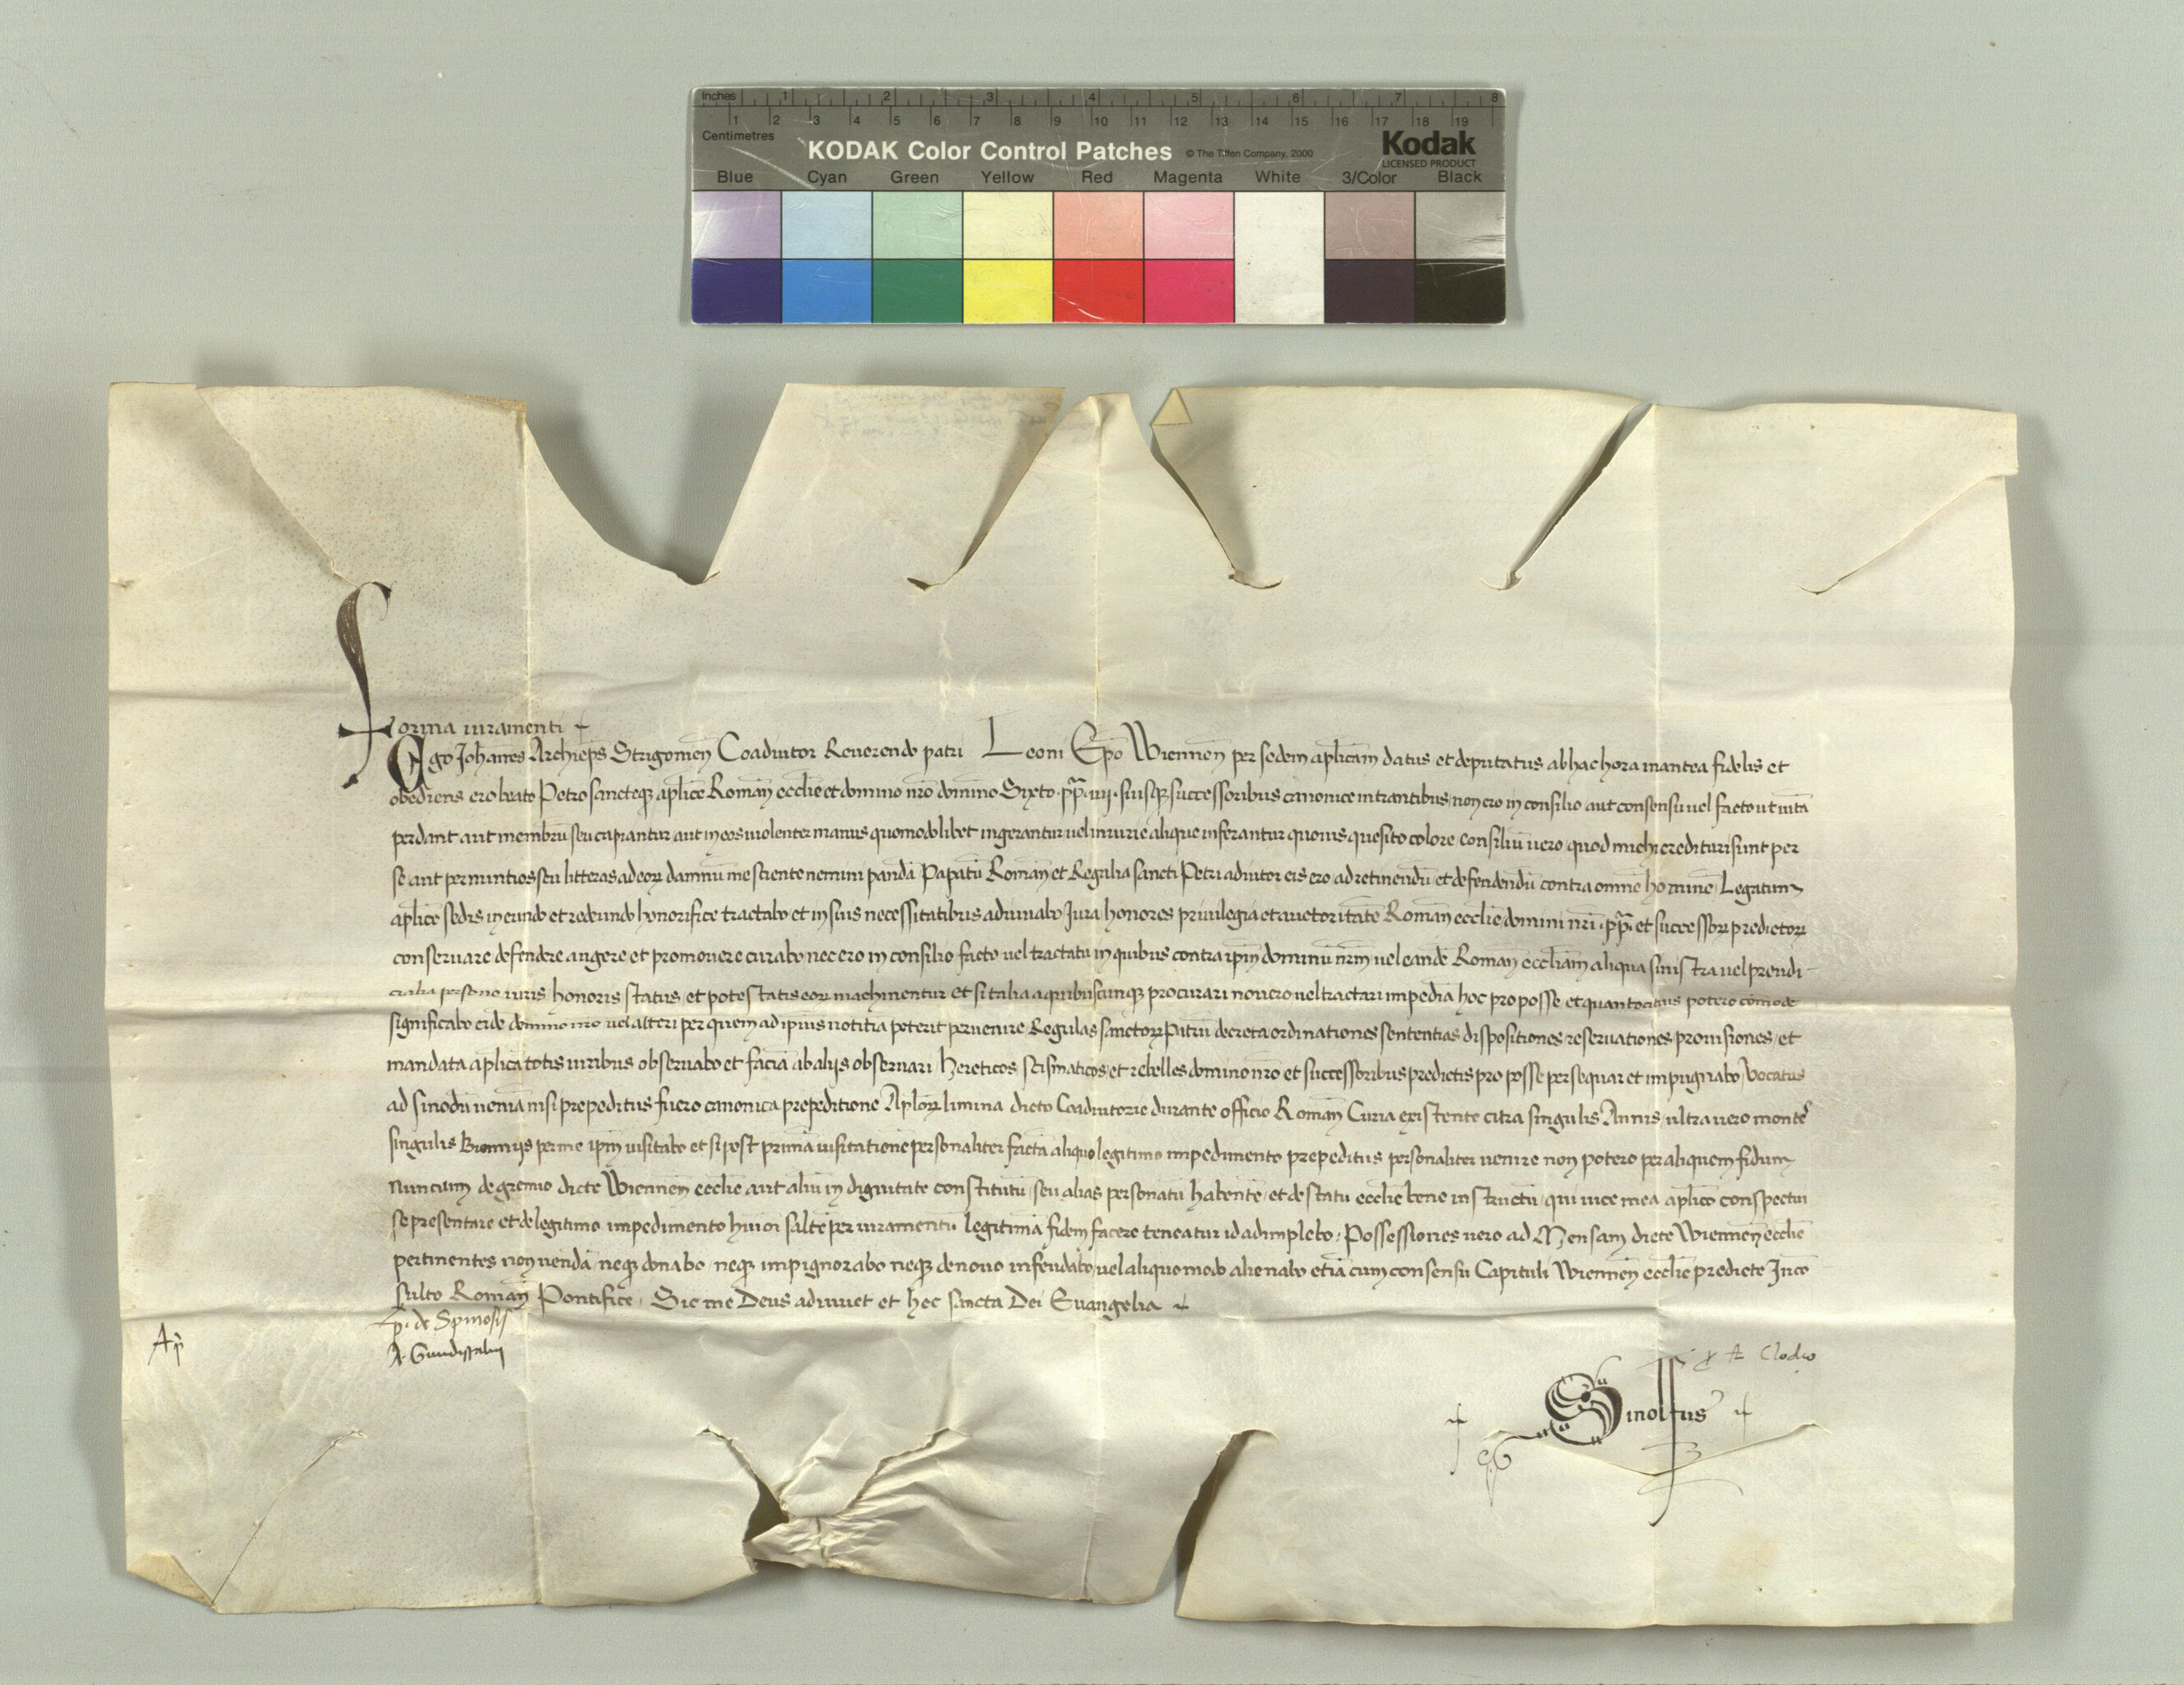 Inches 1 2 3 4 5 6 7 8
1 2 3 4 5 6 7 8 9 10 11 12 13 14 15 16 17 18 19
Centimetres
KODAK Color Control Patches © The Tiffen Company, 2000 Kodak
LICENSED PRODUCT
Blue Cyan Green Yellow Red Magenta White 3/Color Black
Forma iuramenti
Ego Johannes Archiep̄s Strigonien̄ Coadiutor Reverendo patri Leoni Ep̄o Wiennen̄ per sedem ap̄licam datus et deputatus ab hac hora inantea fidelis et
obediens ero beato Petro sancteq; ap̄lice Roman̄ eccl̄ie et domino nr̄o domino Sixto pp̄ iiij suisq; successoribus canonice intrantibus non ero in consilio aut consensu vel facto ut vitā
perdant aut membrū seu capiantur aut in eos violenter manus quomodolibet ingerantur vel iniurie alique inferantur quovis quesito colore consiliū vero quod michi credituri sunt per
se aut per nuntios seu litteras ad eoꝝ damnū me sciente nemini pandā Papatū Roman̄ et Regalia sancti Petri adiutor eis ero ad retinendū et defendendū contra omnē hominē Legatum
ap̄lice sedis in eundo et redeundo honorifice tractabo et in suis necessitatibus adiuvabo Jura honores privilegia et auctoritatē Roman̄ eccl̄ie domini nr̄i pp̄ et successoꝝ predictoꝝ
conservare defendere augere et promovere curabo nec ero in consilio facto vel tractatu in quibus contra ip̄m dominū nr̄m vel eandē Roman̄ eccl̄iam aliqua sinistra vel preiudi
cialia persone iuris honoris status et potestatis eoꝝ machinentur et si talia a quibuscunq; procurari novero vel tractari impediā hoc pro posse et quantocitius potero cōmode
significabo eidē domino nr̄o vel alteri per quem ad ip̄ius notitiā poterit pervenire Regulas sanctoꝝ Patrū decreta ordinationes sententias dispositiones reservationes provisiones et
mandata ap̄lica totis viribus observabo et faciā ab aliis observari hereticos scismaticos et rebelles domino nr̄o et successoribus predictis pro posse persequar et impugnabo vocatus
ad sinodū veniā nisi prepeditus fuero canonica prepeditione Ap̄loꝝ limina dicto Coadiutorie durante officio Roman̄ Curia existente citra singulis Annis ultra vero montes
singulis Bienniis per me ip̄m visitabo et si post primā visitationē personaliter factā aliquo legitimo impedimento prepeditus personaliter venire non potero per aliquem fidum
nuncium de gremio dicte Wiennen̄ eccl̄ie aut aliū in dignitate constitutū seu alias personatū habentē et de statu eccl̄ie bene instructū qui vice mea ap̄lico conspectui
se presentare et de legitimo impedimento huiōi saltē per iuramentū legitimā fidem facere teneatur id adimplebo Possessiones vero ad Mensam dicte Wiennen̄ eccl̄ie
pertinentes non vendā neq; donabo neq; impignorabo neq; de novo infeudabo vel aliquo modo alienabo etiā cum consensu Capituli Wiennen̄ eccl̄ie predicte Inco
sulto Roman̄ Pontifice Sic me Deus adiuvet et hec sancta Dei Evangelia
p. de Spinosis
A. Gundissalvi
Ap̄
A Clodio
Sinolfus